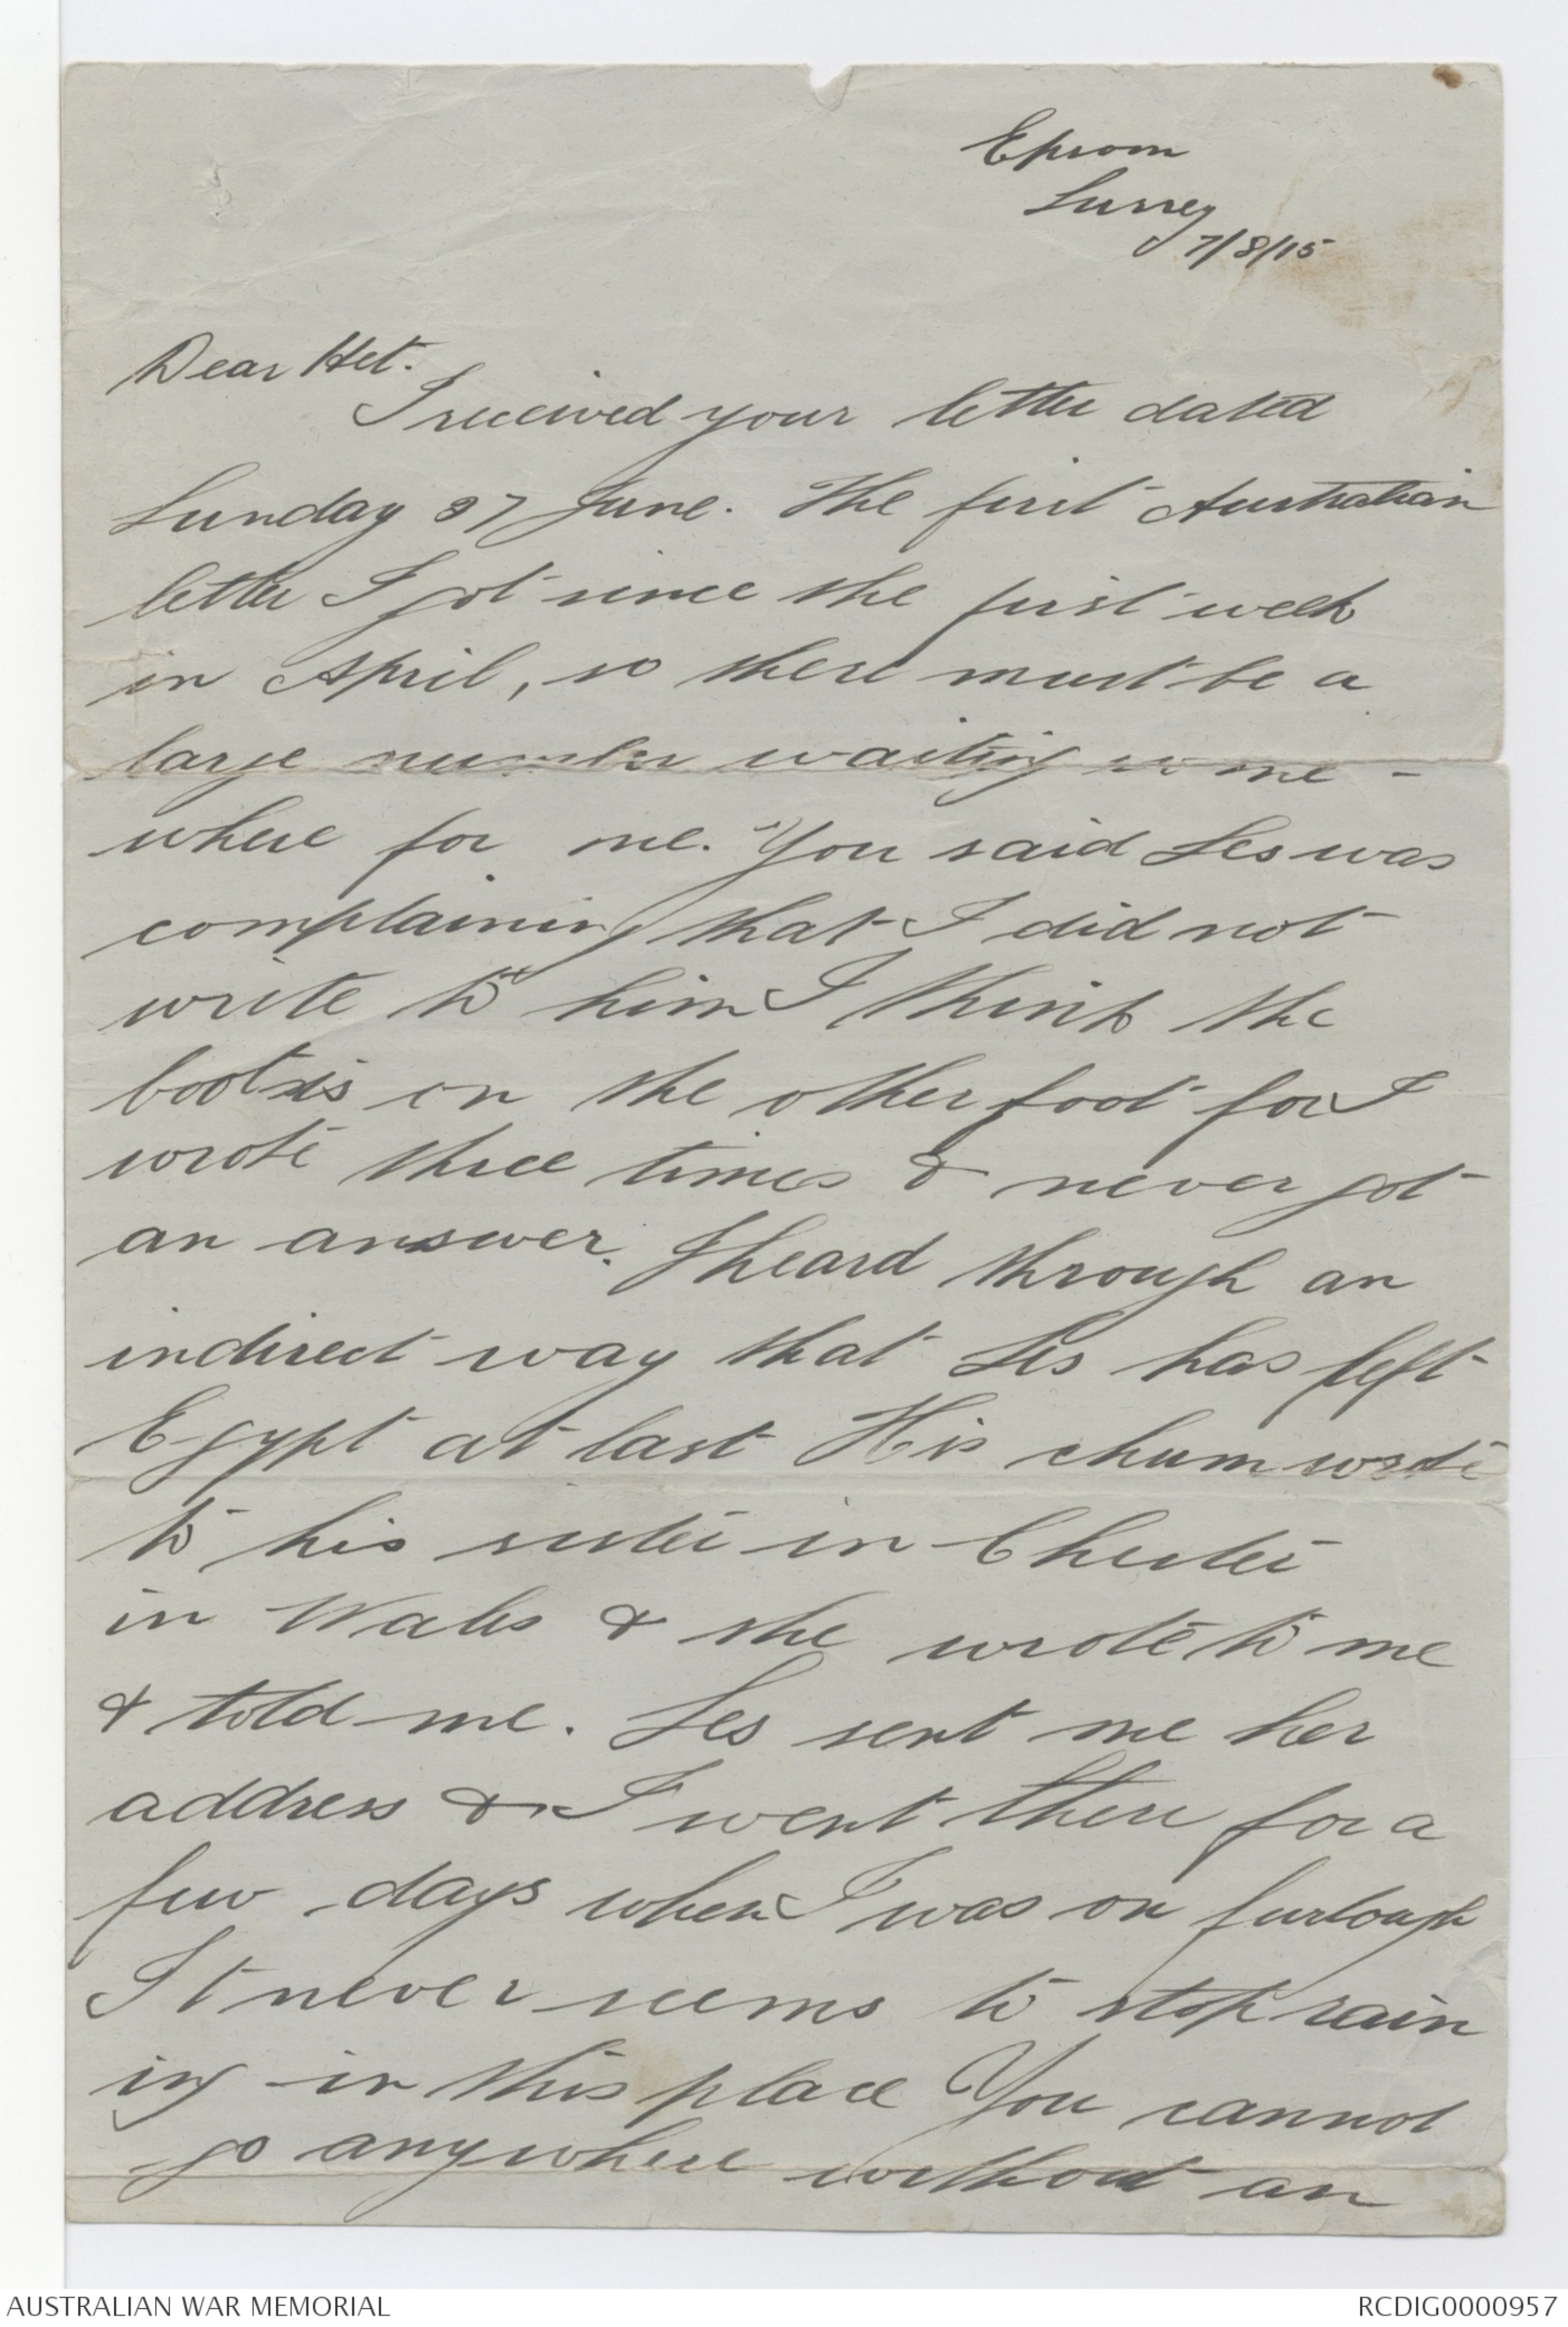 Epsom
Surrey
7/8/15
Dear Het.
I received your letter dated
Sunday 27 June. The first Australian
letter I got since the first week
in April, so there must be a
large number waiting some-
where for me. You said Les was
complaining that I did not
write to him I think the
boot is on the other foot for I
wrote three times & never got
an answer. I heard through an
indirect way that Les has left
Egypt at last His chum wrote
to his sister in Chester
in Wales & she wrote to me
& told me. Les sent me her
address & I went there for a
few days when I was on furlough
It never seems to stop rain
ing in this place You cannot
go anywhere without an
AUSTRALIAN WAR MEMORIAL
RCDIG0000957